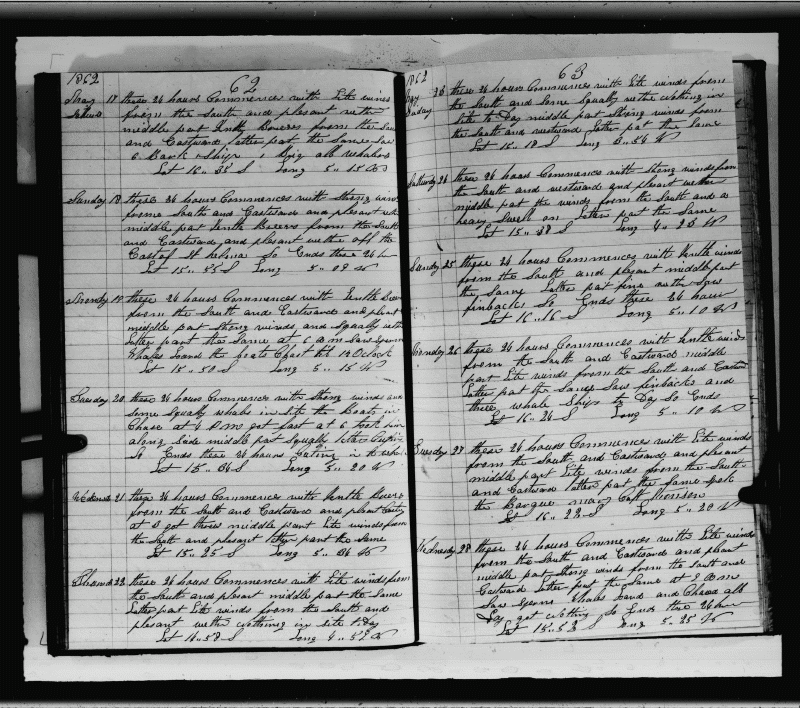 1862 62
17 these 24 hours Commences with Lite winds
from the South and plesant wether
middle part from the South
and Eastward latter part the Same Saw
6 Bark & Ship 1 Brig all
Lat 16 " 35 S Long 5 " 15 W
Sunday 18 these 24 hours Commences with Strong winds
from South and Eastward and plesant
middle part from the South
and Eastward and plesant wether off the
East of St helena So Ends these 24 h
Lat 15 " 55 S Long 5 " 09 W
Monday 19 these 24 hours Commences with Gentle
from the South and Eastward and plesant
middle part Strong winds and Squally
latter part the Same at 6 am Saw Sperm
Whales the boats Chast till 12 Oclock
Lat 15 " 50 S Long 5 " 15 W
Tuesday 20 these 24 hours Commences with Strong winds and
Some Squally whales in Site the Boats in
Chase at 4 P m got fast at 6 took him
along Side middle part Squally latter
So Ends these 24 hours Cuting in the whale
Lat 15 " 36 S Long 5 " 20 W
21 these 24 hours Commences with Gentle
from the South and Eastward and plesant
at 8 got threw middle part Lite winds from
the South and plesant latter part the Same
Lat 15 " 25 S Long 5 " 06 W
22 these 24 hours Commences with Lite winds from
the South and plesant middle part the Same
latter part Lite winds from the South and
plesant wether nothing in Site to day
Lat 15 " 58 S Long 4 " 52 W
1862 63
these 24 hours Commences with Lite winds from
the South and Some Squally wether nothing in
Site to Day middle part Strong winds from
the South and westward latter part the Same
Lat 15 " 18 S Long W
these 24 hours Commences with Strong winds from
the South and westward and plesant wether
middle part the winds from the South and a
heavy Swell on latter part the Same
Lat 15 " 38 S Long 4 " 25 W
Sunday 25 these 24 hours Commences with Gentle winds
from the South and plesant middle part
the Same latter part fine wether Saw
finbacks So Ends these 24 hours
Lat 16 " 16 S Long 5 " 10 W
Monday 26 these 24 hours Commences with Gentle winds
from the South and Eastward middle
part Lite winds from the South and Eastward
latter part the Same Saw finbacks and
three whale Ships to Day So Ends
Lat 16 " 24 S Long 5 " 10 W
Tuesday 27 these 24 hours Commences with Lite winds
from the South and Eastward and plesant
middle part Lite winds from the South
and Eastward latter part the Same
the Barque Capt
Lat 16 " 22 S Long 5 " 20 W
Wednesday 28 these 24 hours Commences with Lite winds
from the South and Eastward and plesant
middle part Strong winds from the South and
Eastward latter part the Same at
Saw Sperm Whales and Chase all
Day got nothing So Ends these 24 hours
Lat 15 " 52 S Long 5 " 25 W